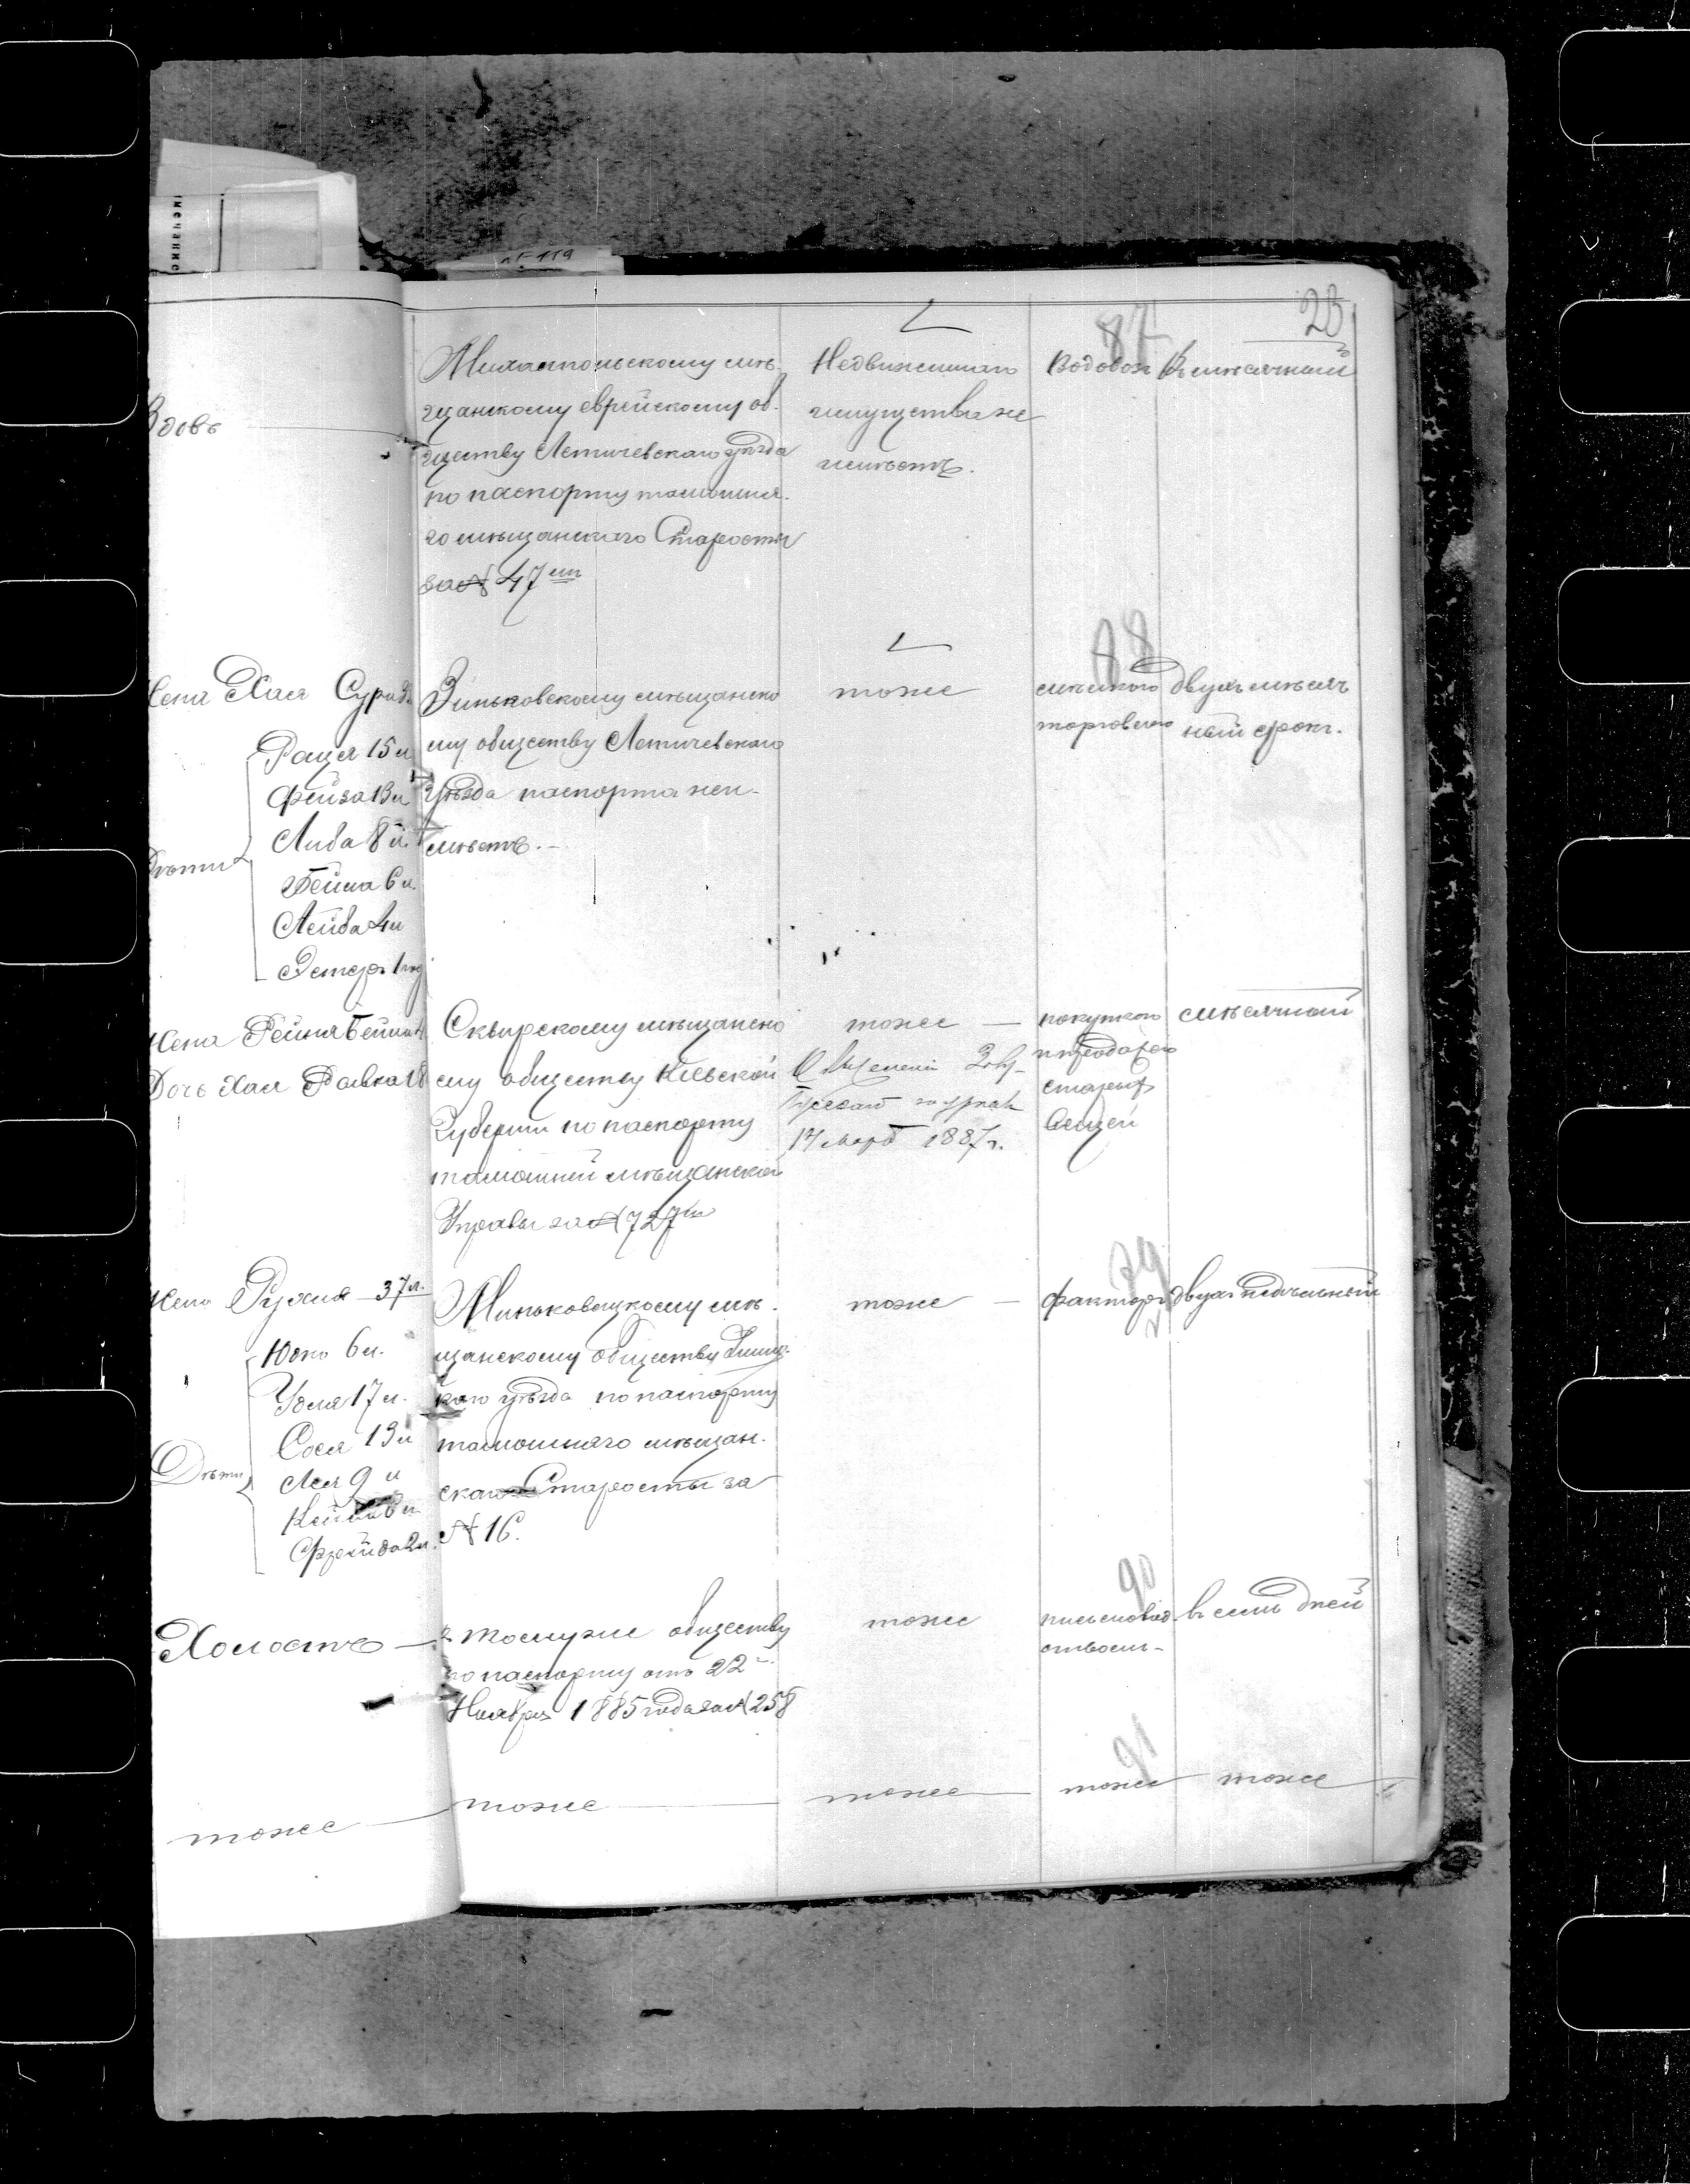 мѣчаніе
119
23
87
Вдовъ
Михалпольскому мѣ-
щанскому еврейскому об-
ществу Летичевскаго уѣзда
по паспорту тамошня-
го мѣщанскаго Старосты
за № 47
Недвижимаго
имущества не
имѣетъ.
Водовозъ
Вмѣсячный
88
Жена Хая Сура
Дѣти
Рація 15 л
Фейга 13 л
Либа 8 л.
Бейла 6 л.
Лейба 4 л
Эстеръ 1 год
Зиньковскому мѣщанско
му обществу Летичевскаго
Уѣзда паспорта неи-
мѣетъ.
тоже
мѣлкою
торговлею
двухъ мѣсяч
ный срокъ.
Жена Рейня
Дочь Хая Ривка 18
Сквирскому мѣщанско
му обществу Кіевской
Губерніи по паспорту
тамошней мѣщанской
Управы за № 727
тоже
О выселеніи
17 марта 1887 г.
покупкою
и продажею
старыхъ
вещей
мѣсячный
Жена Рухля 37 л.
Дѣти
Юсько 6 л.
Удля 17 л.
Сося 13 л
Лея 9 л
Фрейда 2 л.
Миньковецкому мѣ-
щанскому обществу Ушиц-
каго уѣзда по паспорту
тамошняго мѣщан-
скаго Старосты за
№ 16.
тоже
89
факторъ
двухнедѣльный
90
Холостъ
к томуже обществу
по паспорту отъ 22
Ноября 1885 года за № 258
тоже
письмовод-
ствомъ
в семь дней
91
тоже
тоже
тоже
тоже
тоже